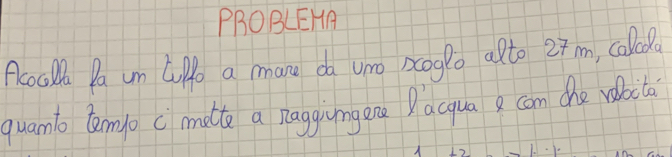 PROBLEMA
Acocella fa un tuffo a mare da uno scoglio alto 27 m, calcola
quanto tempo ci mette a raggiungere l'acqua e con che velocità